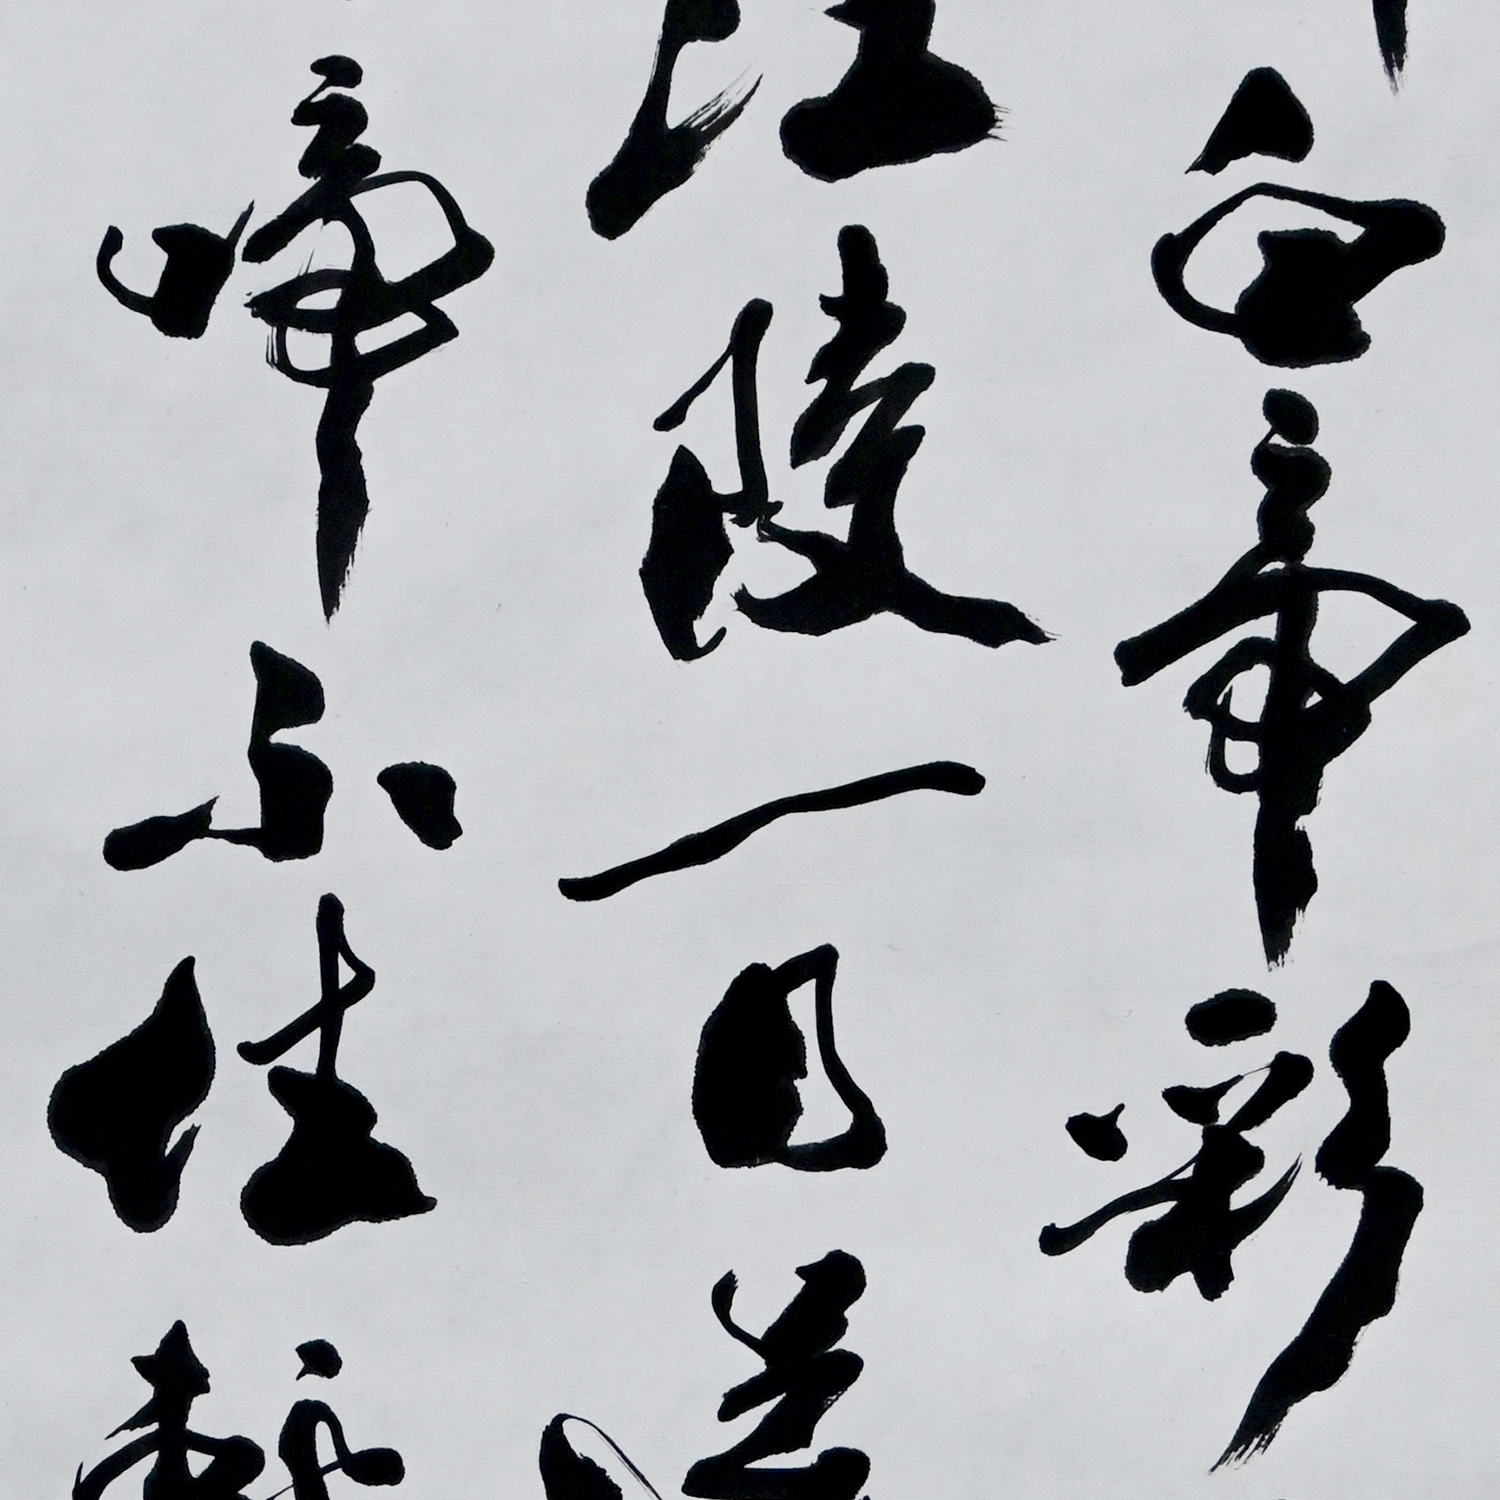 白帝彩
江陵一日還
啼不住輕